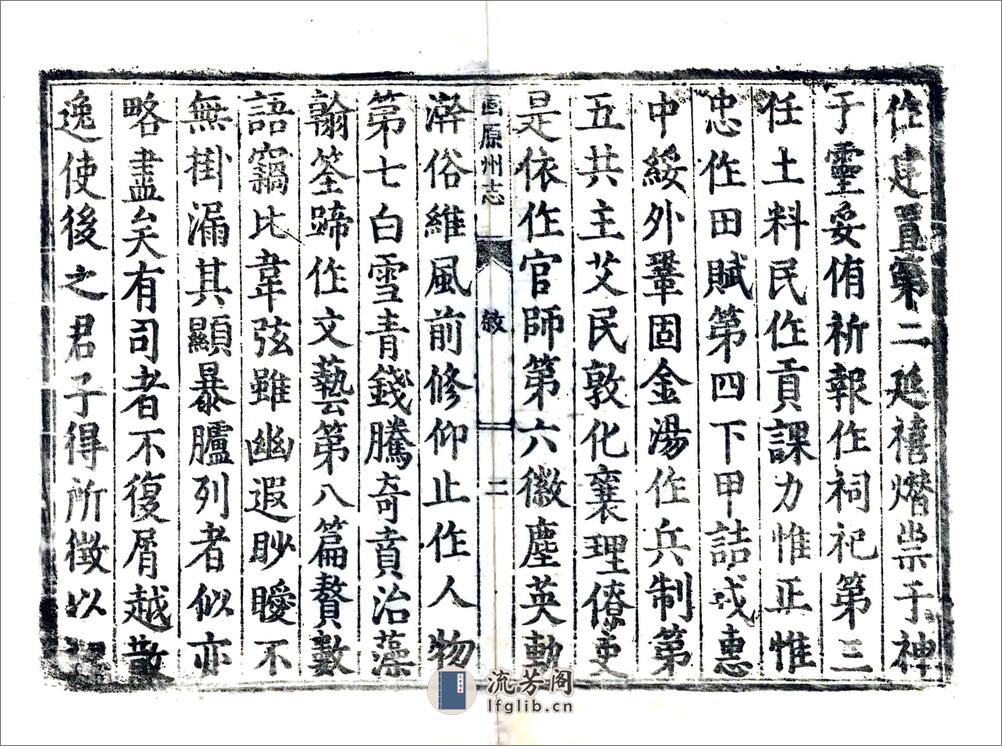 作建置第二延禧熸祟于神
于靈妥侑祈報作祠祀第三
任土料民作貢課力惟正惟
忠作田賦第四下甲詰戎惠
中綏外鞏固金湯作兵制第
五共主艾民敦化襄理僚吏
是依作官師第六徽塵英動
固原州志 敘 二
澣俗維風前修仰止作人物
第七白雪青錢騰奇賁治藻
翰筌蹄作文藝第八篇贅數
語竊比韋弦雖幽遐眇曖不
無掛漏其顯暴臚列者似亦
略盡矣有司者不復屑越散
逸使後之君子得所徵以
流芳阁
lfglib.cn